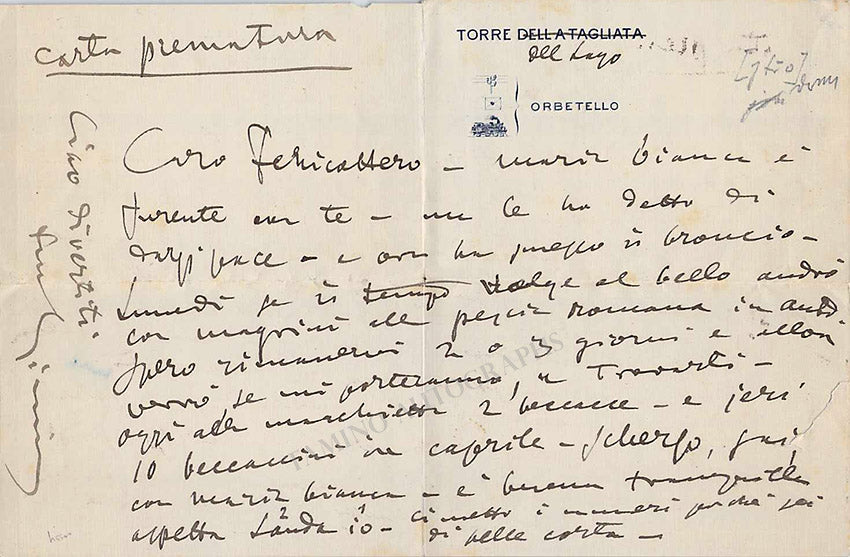 carta prematura
TORRE DELLA TAGLIATA
del Lago
ORBETELLO
Caro Fenicottero – maria bianca è
furente con te – me lo ha detto di
darsi pace – e ora ha preso il broncio –
Lunedì se il tempo volge al bello andrò
con magrini alla pescia romana in auto
spero rimanervi 2 o 3 giorni e allora
verrò se mi porteranno, a trovarti –
oggi alla marchietta 2 beccacce – e jeri
10 beccaccini in caprile – Scherzo,
con maria bianca – è buona tranquilla
aspetta Landa io – Ci metto i numeri perchè sei
di pelle corta –
Ciao divertiti
tuo Giacomo
TAMINO AUTOGRAPHS